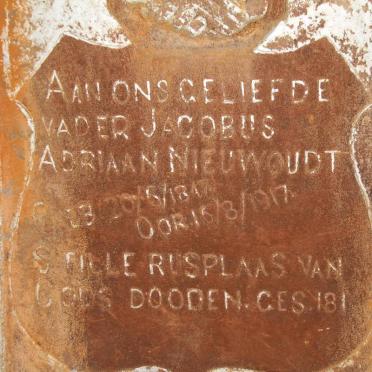 AAN ONS GELIEFDE
VADER JACOBUS
ADRIAAN NIEUWOUDT
OOR 15/8/1917
STILLE RUSPLAAS VAN
GODS DOODEN. GES. 181